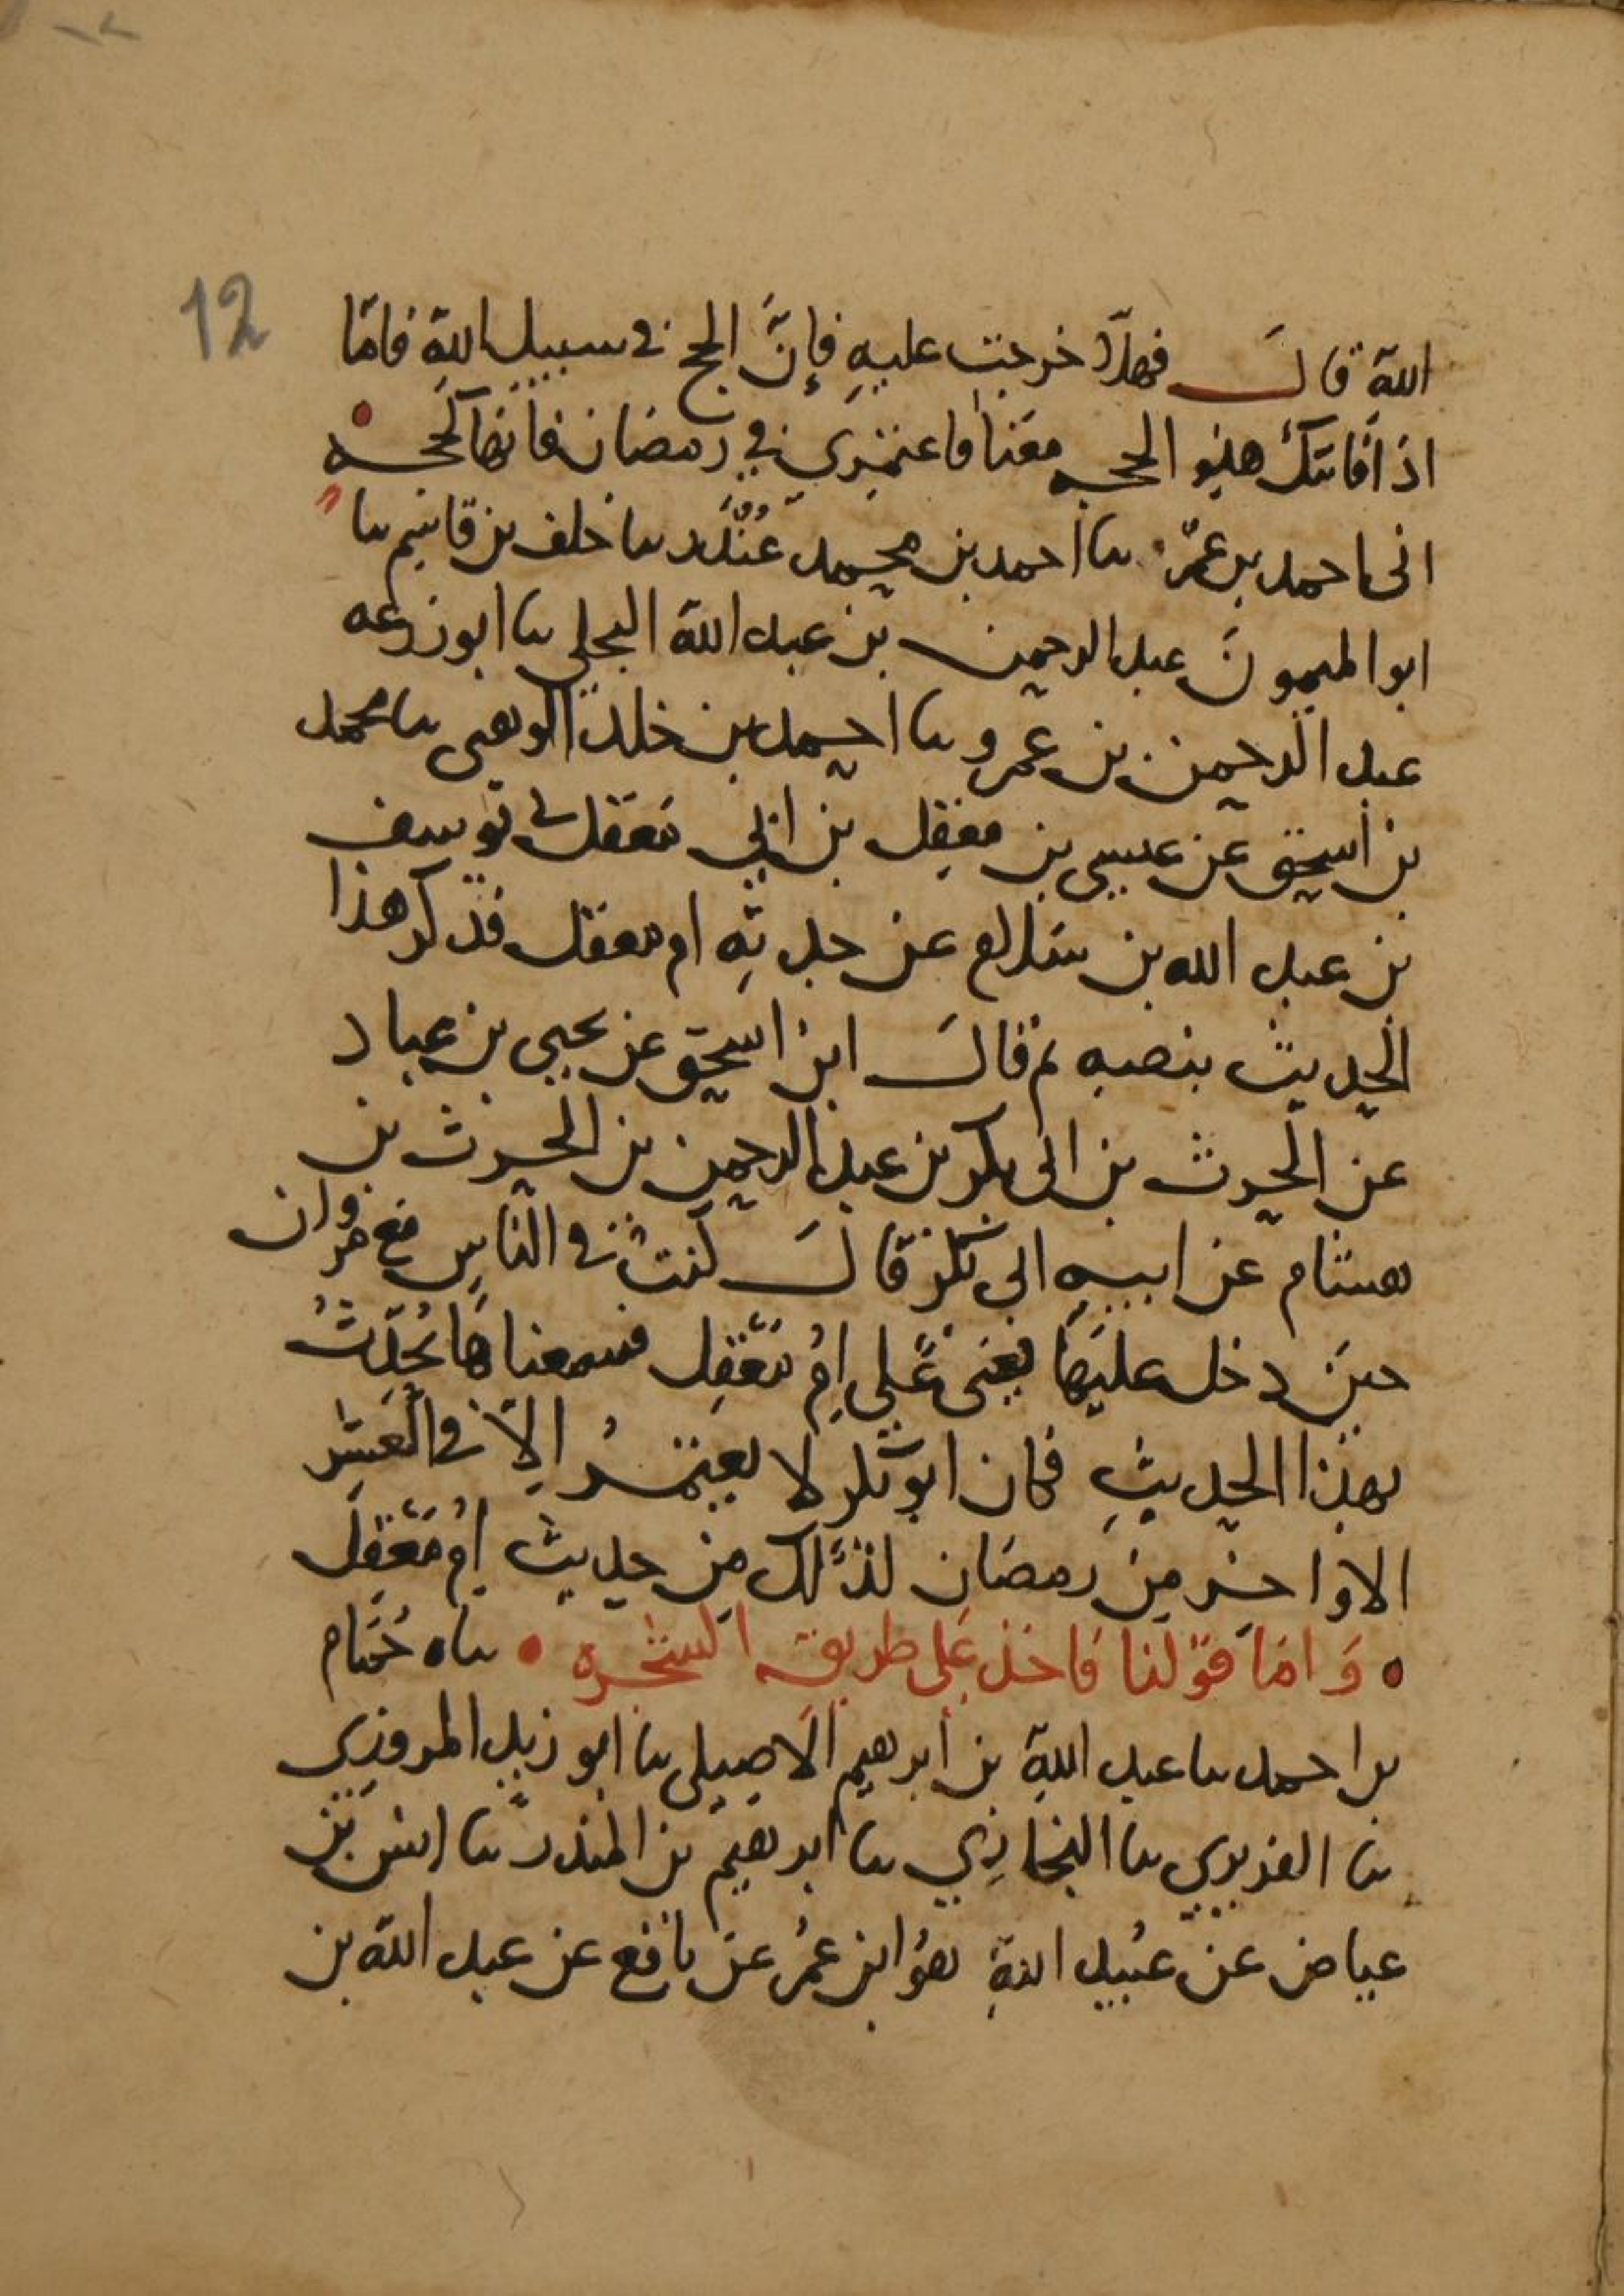 12
الله قال فهلّا خرجت عليه فإنّ الحج في سبيل الله فامّا
اذا فاتتك هذه الحجه معنا فاعتمري في رمضان فانها كحجه
احمد بن عمر نا احمد بن محمد نا خلف بن قاسم نا
ابو الميمون عبد الرحمن بن عبد الله البجلي نا ابو زرعه
عبد الرحمن بن عمرو نا احمد بن خلد الوهبي نا محمد
بن اسحق عن عيسى بن معقل بن ابي معقل يوسف
بن عبد الله بن سلام عن جدته ام معقل فذكر هذا
الحديث بنصه ثم قال ابن اسحق عن يحيى بن عباد
عن الحرث بن ابي بكر بن عبد الرحمن بن الحرث بن
هشام عن ابيه ابي بكر قال كنت في الناس مع مروان
حين دخل عليها يعني على امّ معقل فسمعناها تحدّث
بهذا الحديث فكان ابو بكر لا يعتمر الّا في العشر
الاواخر من رمضان لذلك من حديث امّ معقل
وامّا قولنا فاخذ على طريق الشجره نا همام
بن احمد نا عبد الله بن ابرهيم الاصيلي نا ابو زيد المروزي
نا الفربري نا البخاري نا ابرهيم بن المنذر نا انس بن
عياض عن عبيد الله هو ابن عمر عن نافع عن عبد الله بن